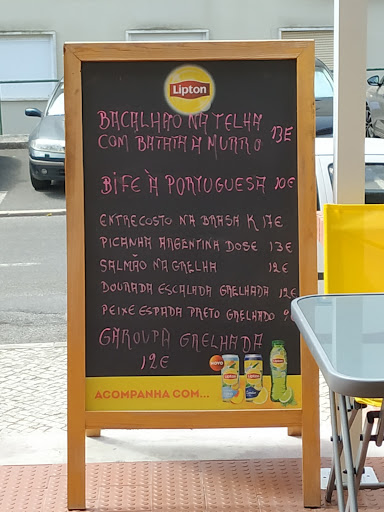 Lipton
BACALHAO NA TELHA
COM BATATA A MURRO 13€
BIFE À PORTUGUESA 10€
ENTRECOSTO NA BRASA K 17€
PICANHA ARGENTINA DOSE 13€
SALMÃO NA GRELHA 12€
DOURADA ESCALADA GRELHADA 12€
PEIXE ESPADA PRETO GRELHADO 9€
GAROUPA GRELHADA
12€
NOVO
Lipton Lipton Lipton
ACOMPANHA COM...